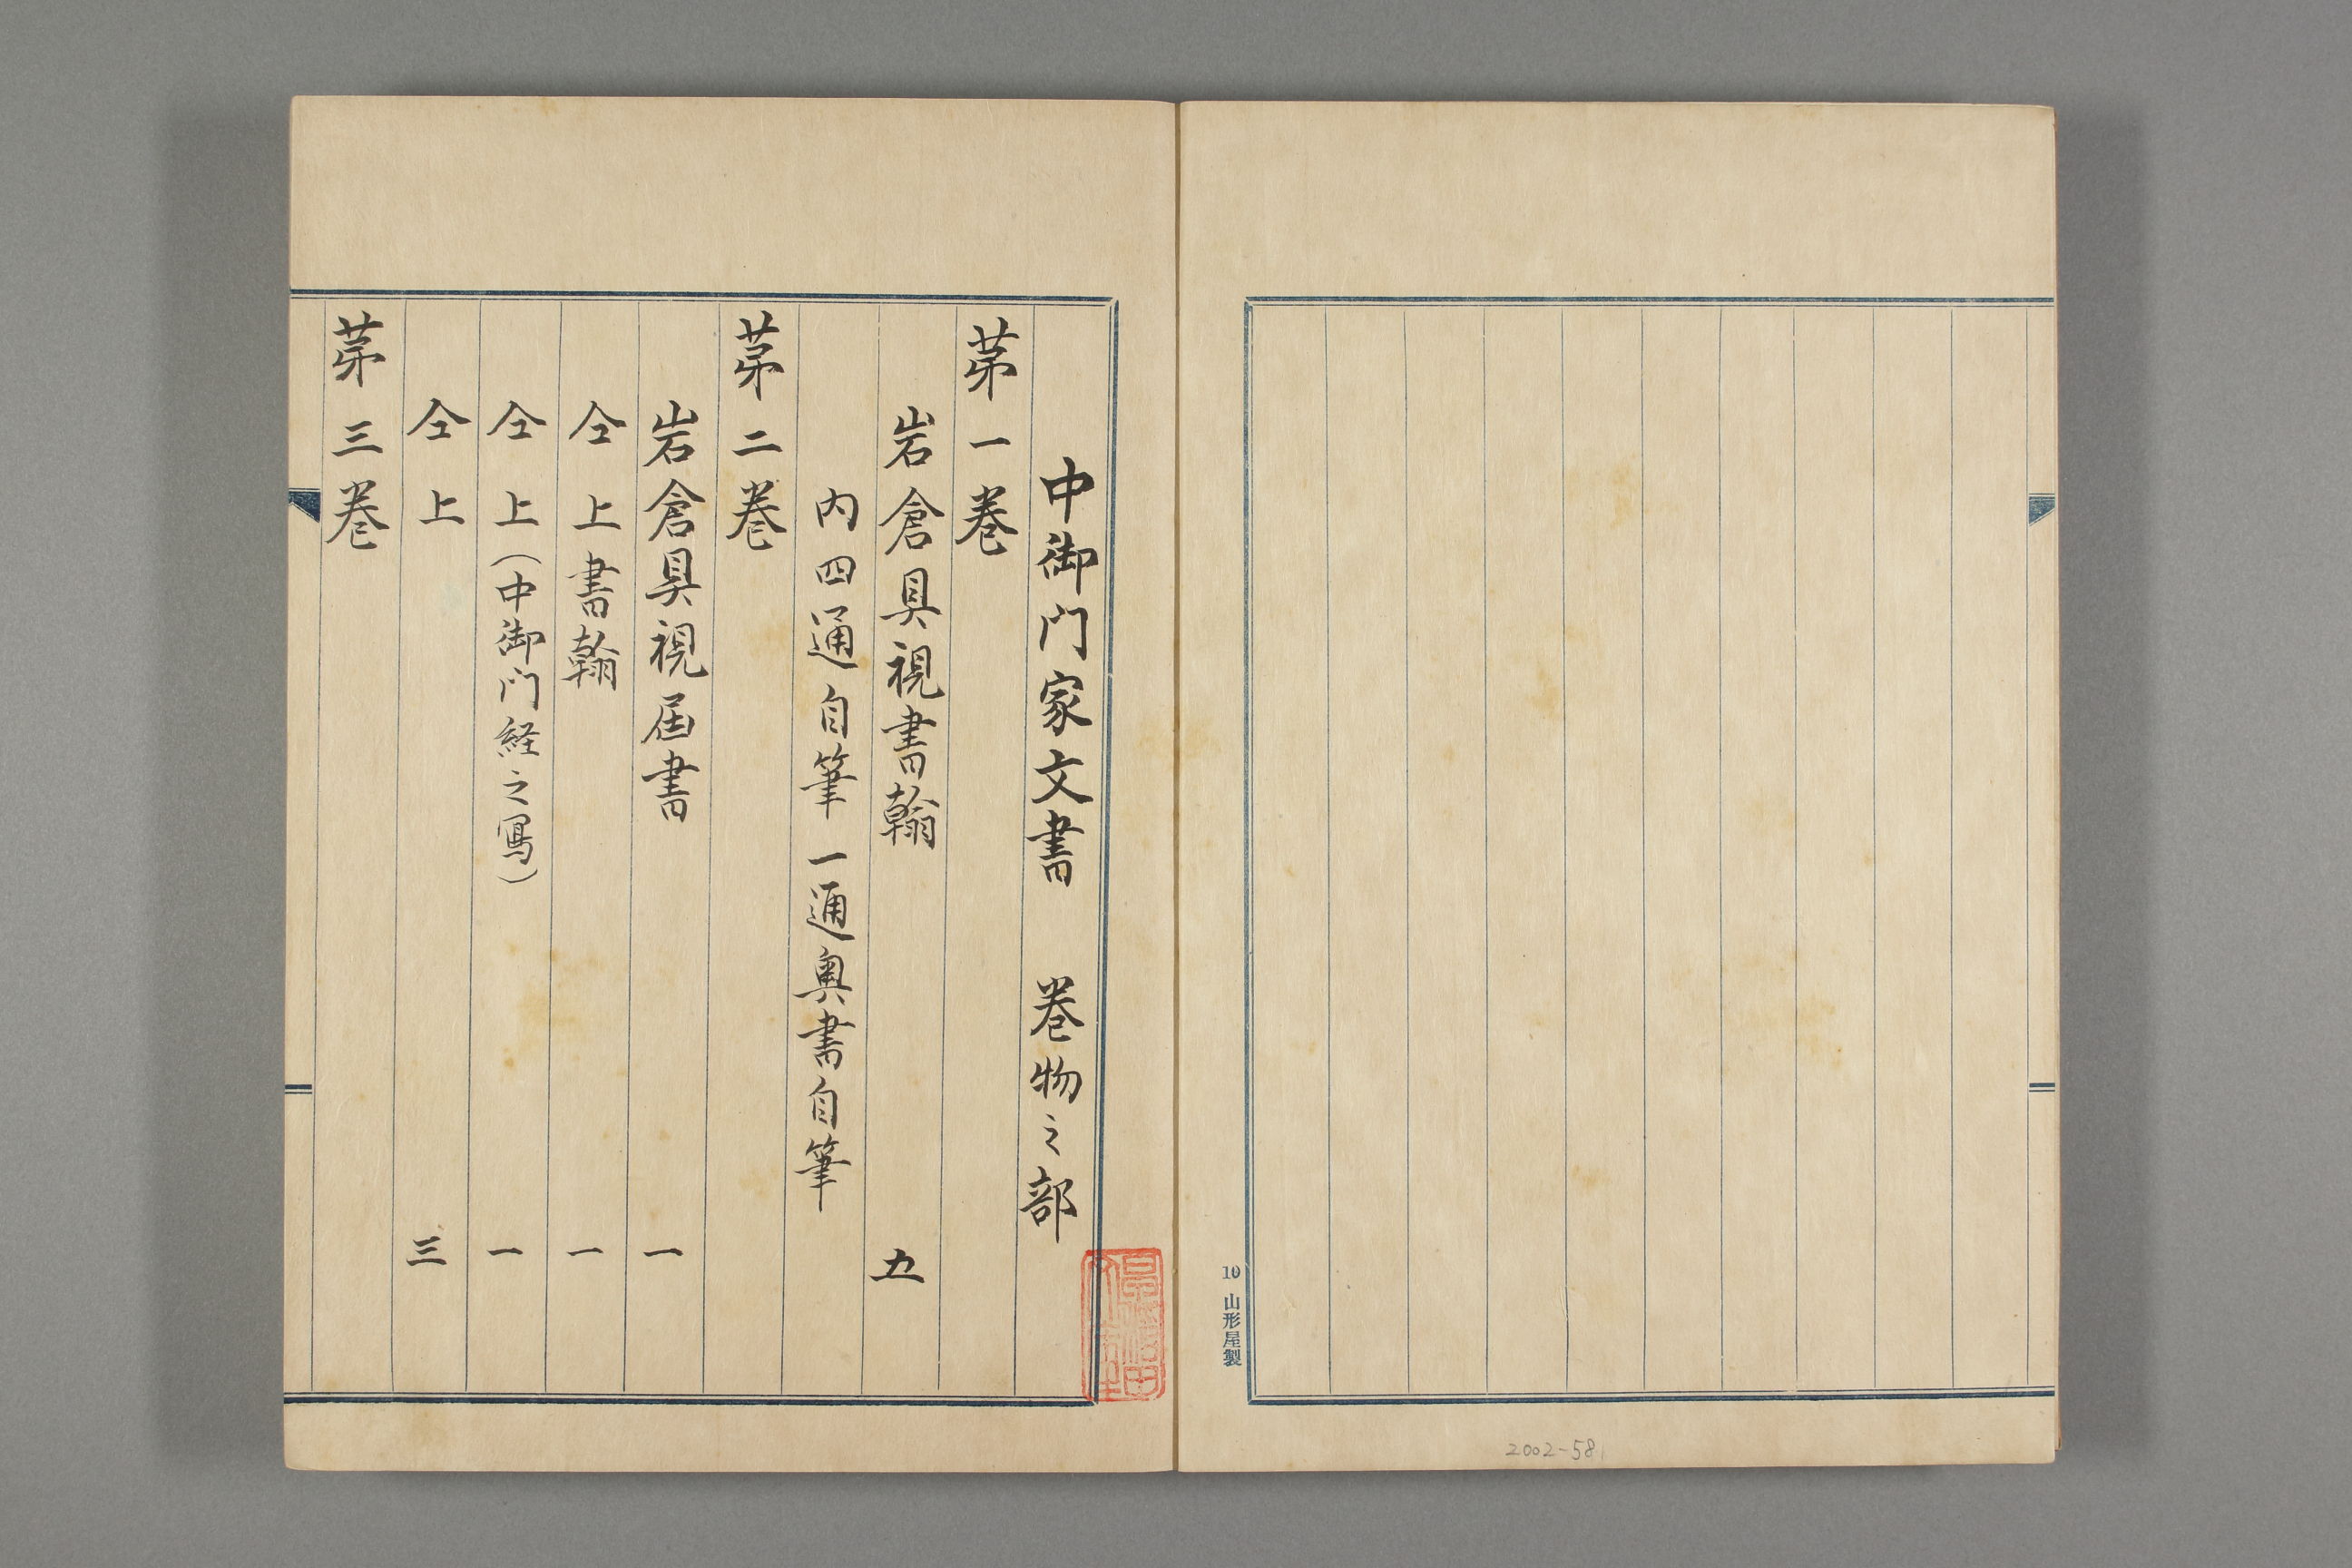 10 山形屋製
2002-58
中御門家文書　巻物之部
苐一巻
岩倉具視書翰　五
内四通自筆一通奥書自筆
苐二巻
岩倉具視届書　一
仝上書翰　一
仝上(中御門経之寫)　一
仝上　三
苐三巻